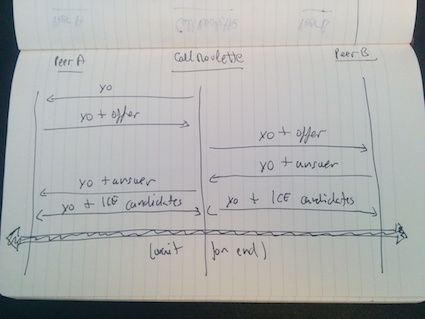 Peer A CallRoulette Peer B
yo
yo + offer
yo + offer
yo + answer
yo + answer
yo + ICE candidates yo + ICE candidates
(wait for end)